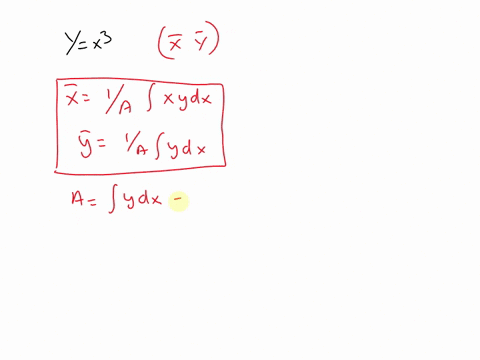 y=x³ (x̄ ȳ)
x̄= 1/A ∫xydx
ȳ= 1/A ∫ydx
A= ∫ydx =